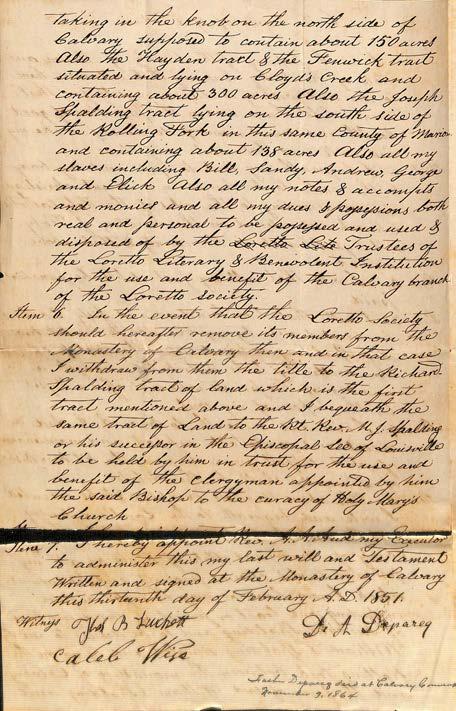 taking in the knob on the north side of
Calvary supposed to contain about 150 acres
Also the Hayden tract & the Fenwick tract
situated and lying on Cloyd's Creek and
containing about 300 acres Also the Joseph
Spalding tract lying on the south side of
the Rolling Fork in this same County of Marion
and containing about 138 acres Also all my
slaves including Bill, Sandy, Andrew, George
and Elick Also all my notes & accompts
and monies and all my dues & possessions both
real and personal to be possessed and used &
disposed of by the Loretto Lite Trustees of
the Loretto Literary & Benevolent Institution
for the use and benefit of the Calvary branch
of the Loretto society.
Item 6. In the event that the Loretto Society
should hereafter remove its members from the
Monastery of Calvary then and in that case
I withdraw from them the title to the Richard
Spalding tract of land which is the first
tract mentioned above and I bequeath the
same tract of Land to the Rt. Rev. M. J. Spalding
or his successor in the Episcopal See of Louisville
to be held by him in trust for the use and
benefit of the clergyman appointed by him
the said Bishop to the curacy of Holy Mary's
Church
Item 7. I hereby appoint Rev. my Executor
to administer this my last will and Testament
Written and signed at the Monastery of Calvary
this thirteenth day of February A.D. 1851.
Witness B D. A Deparcq
Caleb Wise
Father Deparcq died at Calvary Convent
November 9, 1864